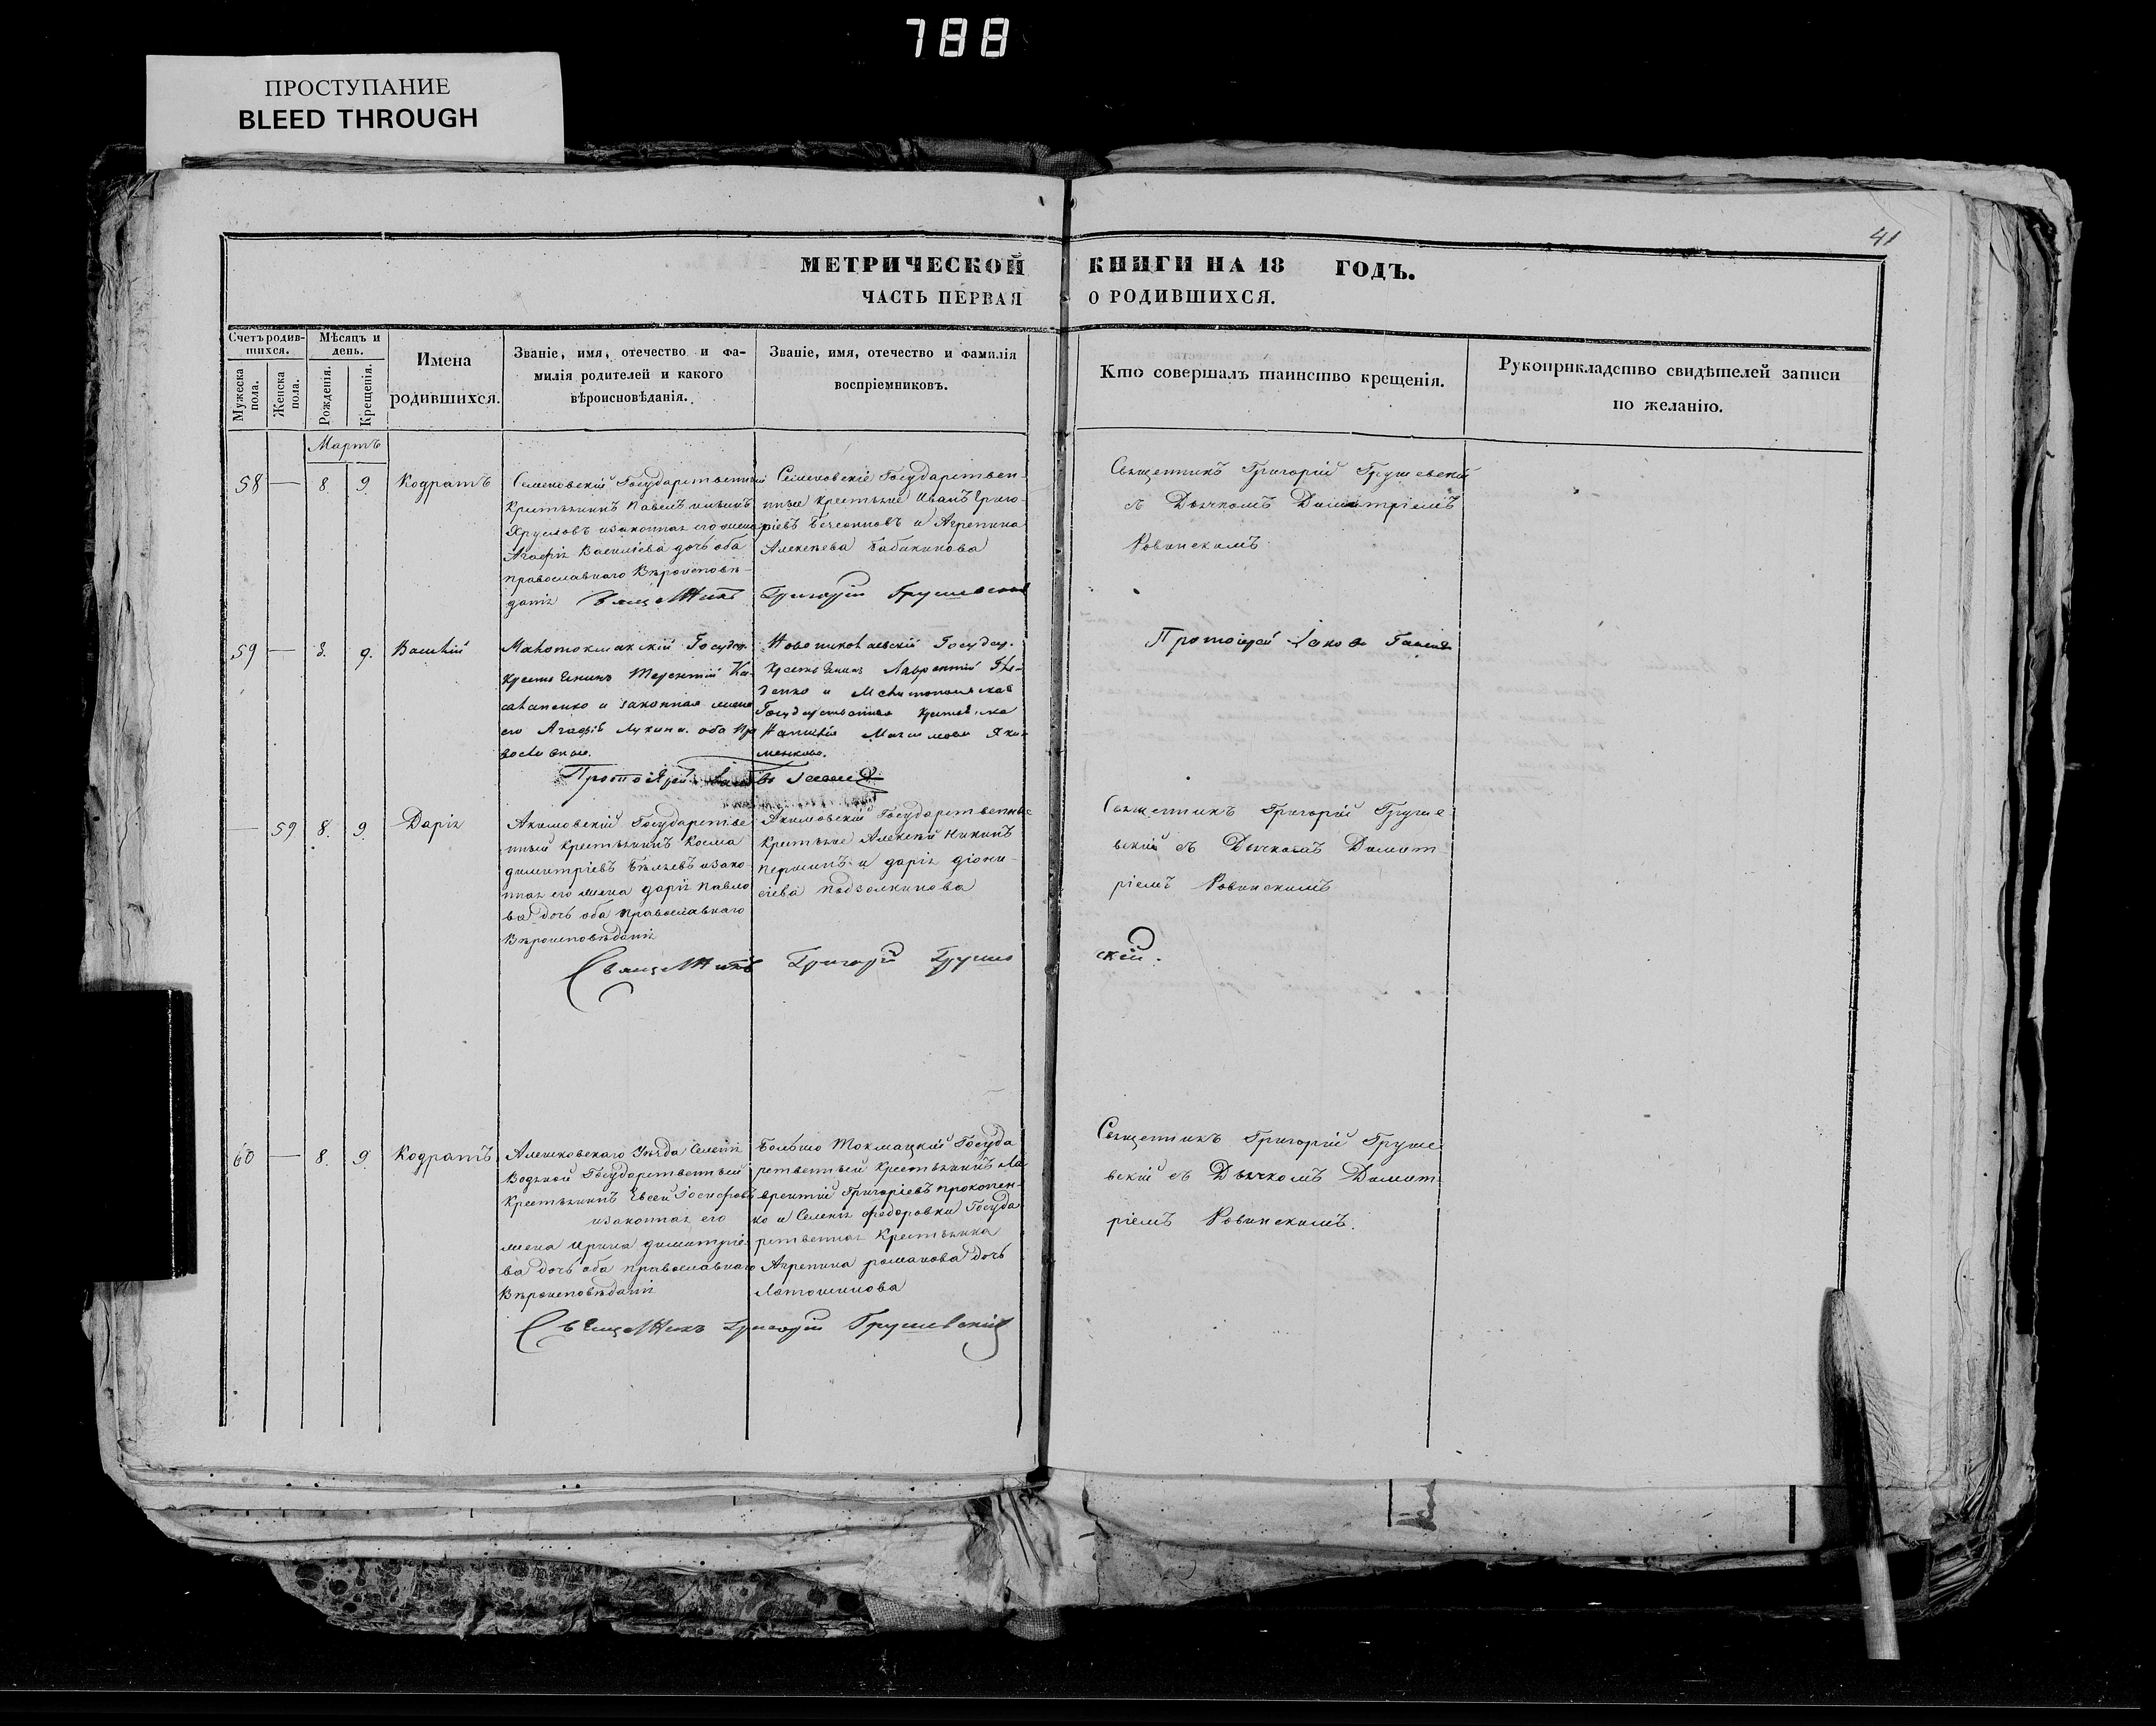 788
ПРОСТУПАНИЕ
BLEED THROUGH
41
МЕТРИЧЕСКОЙ КНИГИ НА 18 ГОДЪ.
ЧАСТЬ ПЕРВАЯ О РОДИВШИХСЯ.
Счетъ родив-
шихся.
Мужеска
пола.
Женска
пола.
Мѣсяцъ и
день.
Рожденія.
Крещенія.
Имена
родившихся.
Званіе, имя, отечество и фа-
милія родителей и какого
вѣроисновѣданія.
Званіе, имя, отечество и фамилія
воспріемниковъ.
Кто совершалъ таинство крещенія.
Рукоприкладство свидѣтелей записи
по желанію.
Мартъ
58 — 8. 9. Кодратъ
Семеновскій Государственный
Крестьянинъ Павелъ
Хрусловъ изаконная его жена
Агафія Василіева дочь оба
православнаго Вѣроисповѣ-
данія
Семеновскіе Государствен-
ныи крестьяне Иванъ Григо-
ріевъ и Агрепина
Алексѣева Бабакинова
Священникъ Григорій Грушевскій
Священникъ Григорій Грушевскій
съ Дьячкомъ Димитріемъ
Ровинскимъ
59 — 8. 9. Василій
Малотокмакскій Государ.
Терентій
и законная жена
его Агафія Лукина оба Пра
вославные.
Новониколаевскій Государ.
Лаврентій
и Мелитопольская
Государственная
Протоіерей
Протоіерей Іаковъ
— 59 8. 9. Дарія
Акимовскій Государстве
нныи Крестьянинъ Косма
димитріевъ Бѣляевъ изако
нная его жена дарія Павло
ва дочь оба православнаго
Вѣроисповѣданія
Акимовскіи Государственные
Крестьяне Алексѣй Никинъ
першинъ и дарія діони-
сіева подзолкинова
Священникъ Григорій Грушевскій.
Священникъ Григорій Груше
вскій съ Дьячкомъ Димит
ріемъ Ровинскимъ
60 — 8. 9. Кодратъ
Алешковскаго Уѣзда Селенія
Водяной Государственный
Крестьянинъ Евсей Іосифовъ
изаконная его
жена Ирина димитріе
ва дочь оба православнаго
Вѣроисповѣданія
Больше Токмацкій Госуда
рственный Крестьянинъ Ла
врентій Григоріевъ прокопен-
ко и Селенія Федоровки Госуда
рственная Крестьянка
Агрепина романова дочь
Латошинова
Священникъ Григорій Грушевскій
Священникъ Григорій Груше
вскій съ Дьячкомъ Димит
ріемъ Ровинскимъ.